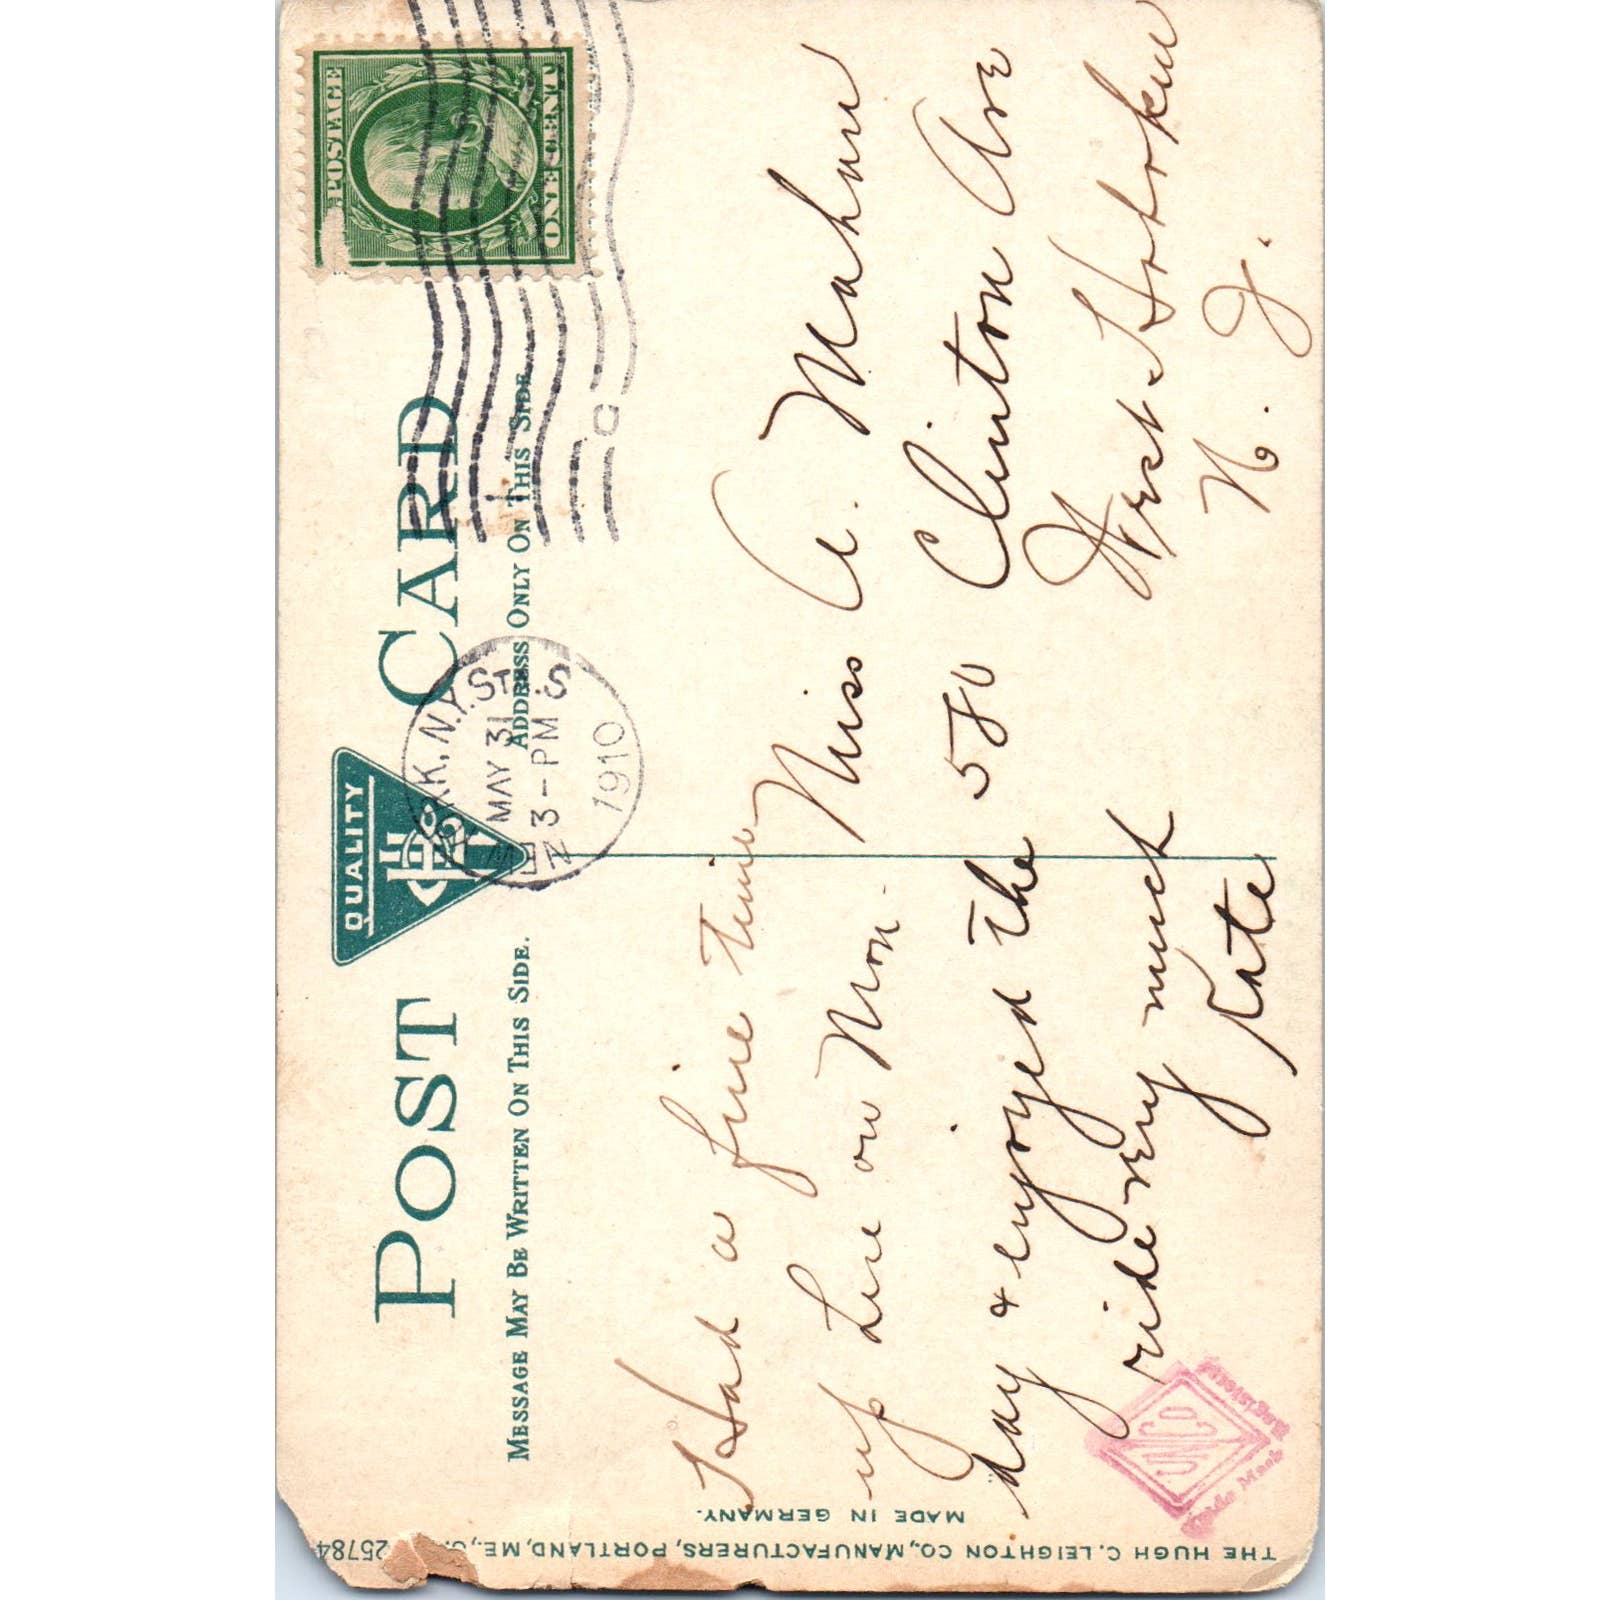 POST CARD
QUALITY
MESSAGE MAY BE WRITTEN ON THIS SIDE.
ADDRESS ONLY ON THIS SIDE.
POSTAGE
ONE CENT
N.Y. STA. S
MAY 31
3-PM
1910
C
Had a fine time
up here on Mon.
day & enjoyed the
ride very much
Kate
Miss A. Mahun
580 Clinton Ave
West Hoboken
N. J.
THE HUGH C. LEIGHTON CO., MANUFACTURERS, PORTLAND, ME.,
25784
MADE IN GERMANY.
Trade Mark Registered